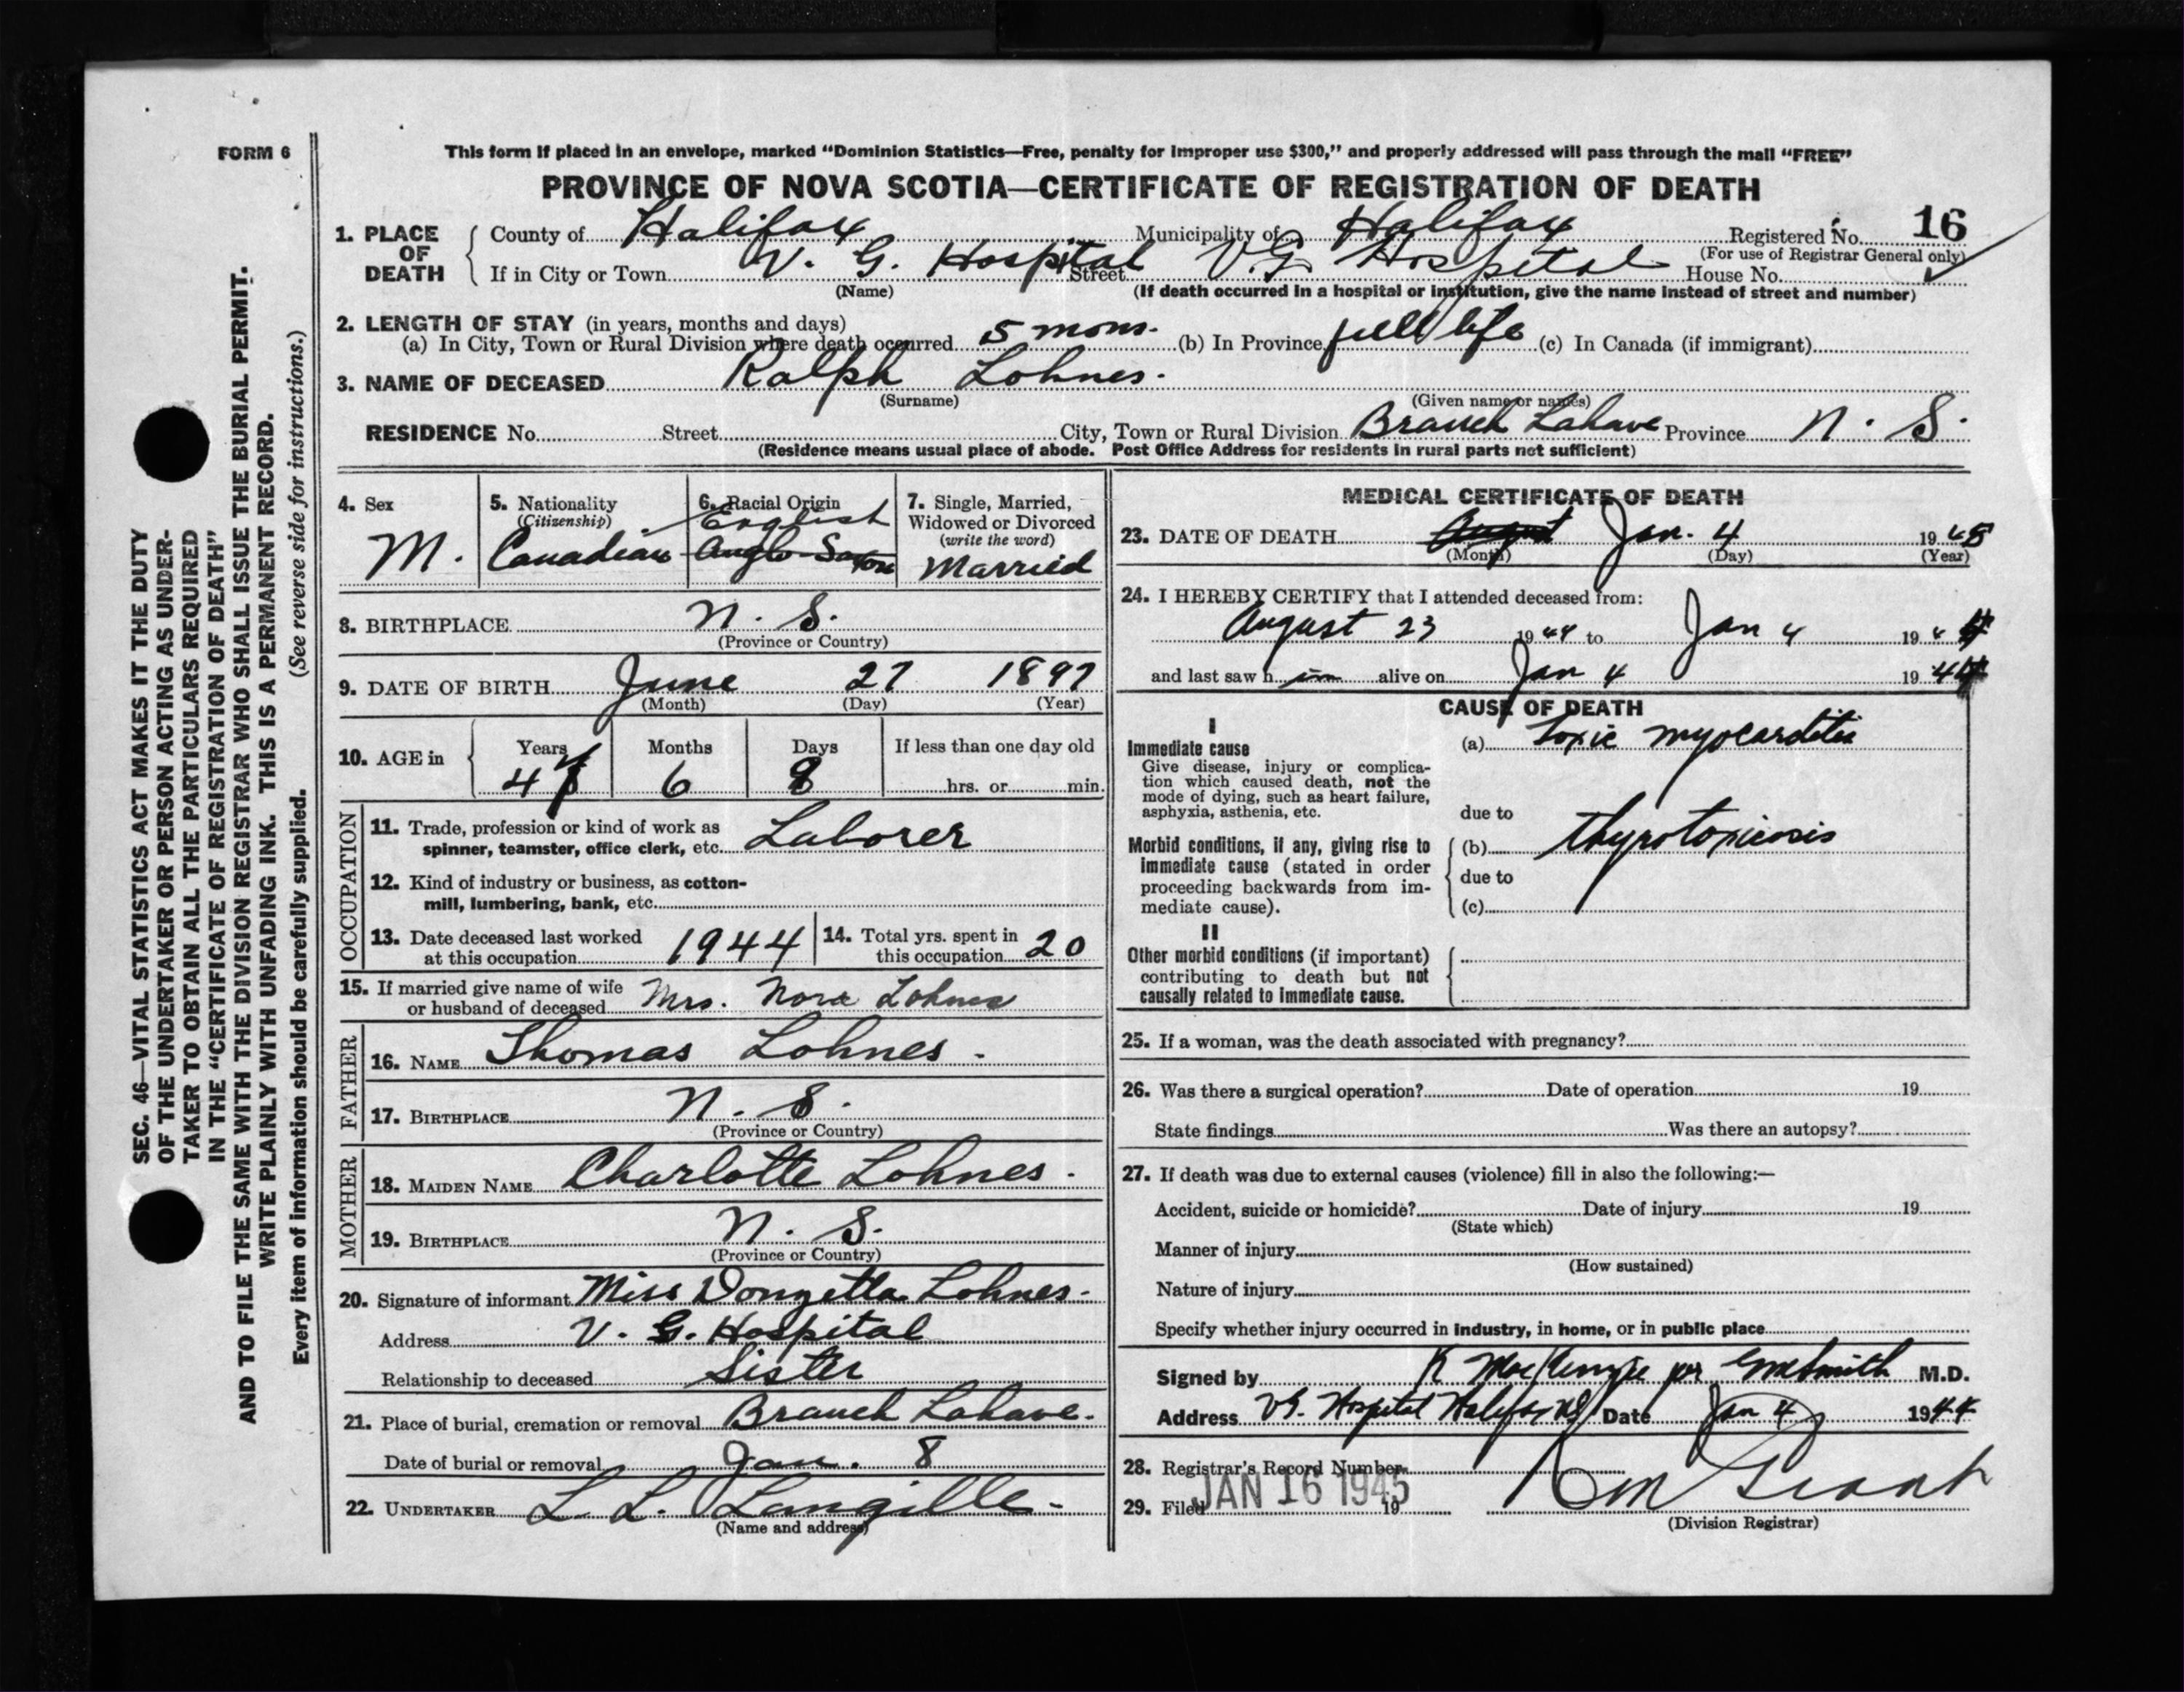 FORM 6
This form if placed in an envelope, marked “Dominion Statistics—Free, penalty for improper use $300,” and properly addressed will pass through the mail “FREE”
PROVINCE OF NOVA SCOTIA—CERTIFICATE OF REGISTRATION OF DEATH
1. PLACE OF DEATH
County of Halifax Municipality of Halifax Registered No. 16
(For use of Registrar General only)
If in City or Town V. G. Hospital Street V.G. Hospital House No.
(Name) (If death occurred in a hospital or institution, give the name instead of street and number)
2. LENGTH OF STAY (in years, months and days)
(a) In City, Town or Rural Division where death occurred 5 mons. (b) In Province full life (c) In Canada (if immigrant)
3. NAME OF DECEASED Ralph Lohnes.
(Surname) (Given name or names)
RESIDENCE No. Street City, Town or Rural Division Branch Lahave Province N. S.
(Residence means usual place of abode. Post Office Address for residents in rural parts not sufficient)
4. Sex
M.
5. Nationality
(Citizenship)
Canadian
6. Racial Origin
English
Anglo-Saxon
7. Single, Married,
Widowed or Divorced
(write the word)
Married
8. BIRTHPLACE N. S.
(Province or Country)
9. DATE OF BIRTH June 27 1897
(Month) (Day) (Year)
10. AGE in
Years Months Days If less than one day old
47 6 8 hrs. or min.
OCCUPATION
11. Trade, profession or kind of work as
spinner, teamster, office clerk, etc. Laborer
12. Kind of industry or business, as cotton-
mill, lumbering, bank, etc.
13. Date deceased last worked
at this occupation 1944
14. Total yrs. spent in
this occupation 20
15. If married give name of wife
or husband of deceased Mrs. Nora Lohnes
FATHER
16. NAME Thomas Lohnes.
17. BIRTHPLACE N. S.
(Province or Country)
MOTHER
18. MAIDEN NAME Charlotte Lohnes.
19. BIRTHPLACE N. S.
(Province or Country)
20. Signature of informant Miss Donzetta Lohnes.
Address V. G. Hospital
Relationship to deceased Sister
21. Place of burial, cremation or removal Branch Lahave.
Date of burial or removal Jan. 8
22. UNDERTAKER L. L. Langille.
(Name and address)
MEDICAL CERTIFICATE OF DEATH
23. DATE OF DEATH August Jan. 4 1945
(Month) (Day) (Year)
24. I HEREBY CERTIFY that I attended deceased from:
August 23 1944 to Jan 4 194
and last saw him alive on Jan 4 194
CAUSE OF DEATH
I
Immediate cause
Give disease, injury or complica-
tion which caused death, not the
mode of dying, such as heart failure,
asphyxia, asthenia, etc.
(a) Toxic myocarditis
due to
Morbid conditions, if any, giving rise to
immediate cause (stated in order
proceeding backwards from im-
mediate cause).
(b) thyrotoxicosis
due to
(c)
II
Other morbid conditions (if important)
contributing to death but not
causally related to immediate cause.
25. If a woman, was the death associated with pregnancy?
26. Was there a surgical operation? Date of operation 19
State findings Was there an autopsy?
27. If death was due to external causes (violence) fill in also the following:—
Accident, suicide or homicide? Date of injury 19
(State which)
Manner of injury
(How sustained)
Nature of injury
Specify whether injury occurred in industry, in home, or in public place
Signed by K MacKenzie per M.D.
Address V.G. Hospital Halifax NS Date Jan 4 1944
28. Registrar's Record Number
29. Filed JAN 16 1945 19
Grant
(Division Registrar)
SEC. 46—VITAL STATISTICS ACT MAKES IT THE DUTY
OF THE UNDERTAKER OR PERSON ACTING AS UNDER-
TAKER TO OBTAIN ALL THE PARTICULARS REQUIRED
IN THE “CERTIFICATE OF REGISTRATION OF DEATH”
AND TO FILE THE SAME WITH THE DIVISION REGISTRAR WHO SHALL ISSUE THE BURIAL PERMIT.
WRITE PLAINLY WITH UNFADING INK. THIS IS A PERMANENT RECORD.
Every item of information should be carefully supplied. (See reverse side for instructions.)